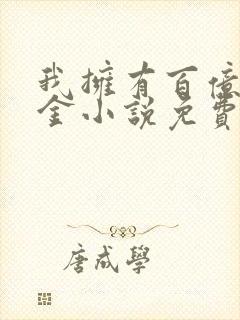 我擁有百億
金小說免費
唐咸學